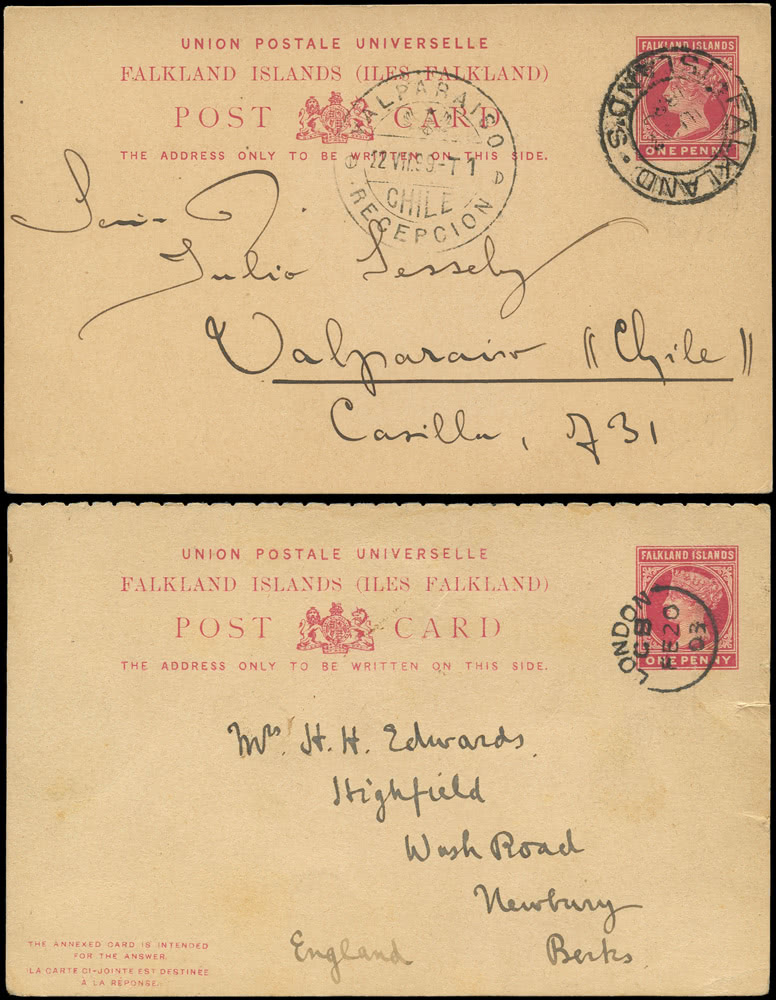 UNION POSTALE UNIVERSELLE
FALKLAND ISLANDS (ILES FALKLAND)
POST CARD
THE ADDRESS ONLY TO BE WRITTEN ON THIS SIDE.
FALKLAND ISLANDS
ONE PENNY
FALKLAND ISLANDS.
VALPARAISO
22 VII.99-T1
CHILE
RECEPCION
Julio
Valparaiso (Chile)
Casilla, 731
UNION POSTALE UNIVERSELLE
FALKLAND ISLANDS (ILES FALKLAND)
POST CARD
THE ADDRESS ONLY TO BE WRITTEN ON THIS SIDE.
FALKLAND ISLANDS
ONE PENNY
LONDON
FE 20
03
Mrs. H. H. Edwards.
Highfield
Wash Road
Newbury
Berks
England
THE ANNEXED CARD IS INTENDED
FOR THE ANSWER.
LA CARTE CI-JOINTE EST DESTINÉE
À LA RÉPONSE.